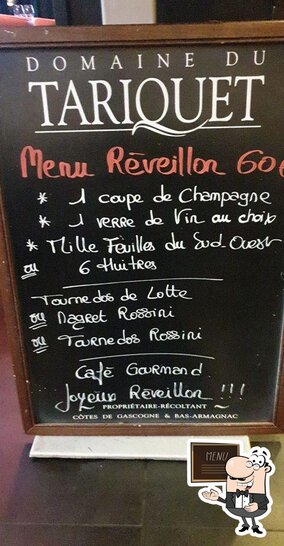 DOMAINE DU
TARIQUET
Menu Réveillon 60€
* 1 coupe de Champagne
* 1 verre de Vin au choix
* Mille Feuilles du Sud Ouest
ou 6 Huitres
Tournedos de Lotte
ou Magret Rossini
ou Tournedos Rossini
Café Gourmand
Joyeux Réveillon !!!
PROPRIÉTAIRE-RÉCOLTANT
CÔTES DE GASCOGNE & BAS-ARMAGNAC
MENU